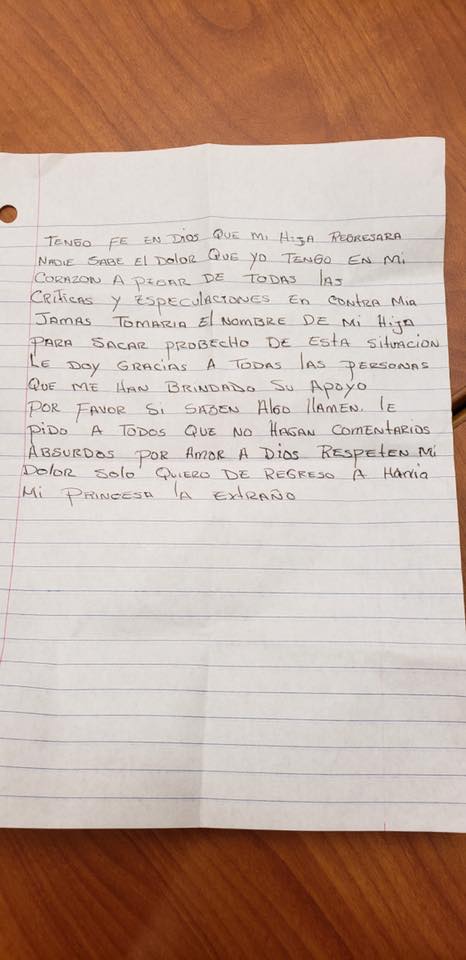 TENGO FE EN DIOS QUE MI HIJA REGRESARA
NADIE SABE EL DOLOR QUE YO TENGO EN MI
CORAZON A PEZAR DE TODAS LAS
CRITICAS Y ESPECULACIONES EN CONTRA MIA
JAMAS TOMARIA EL NOMBRE DE MI HIJA
PARA SACAR PROBECHO DE ESTA SITUACION
LE DOY GRACIAS A TODAS LAS PERSONAS
QUE ME HAN BRINDADO SU APOYO
POR FAVOR SI SABEN ALGO LLAMEN. LE
PIDO A TODOS QUE NO HAGAN COMENTARIOS
ABSURDOS POR AMOR A DIOS RESPETEN MI
DOLOR SOLO QUIERO DE REGRESO A HANIA
MI PRINCESA LA EXTRAÑO